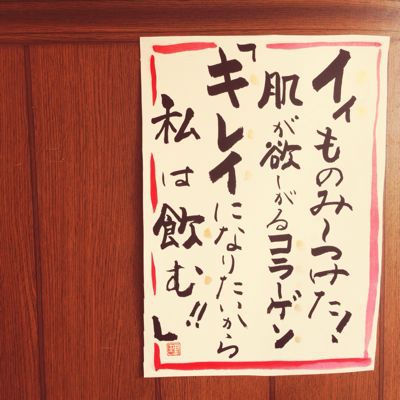 イイものみ〜つけた!、
肌が欲しがるコラーゲン
「キレイになりたいから
私は飲む!!」